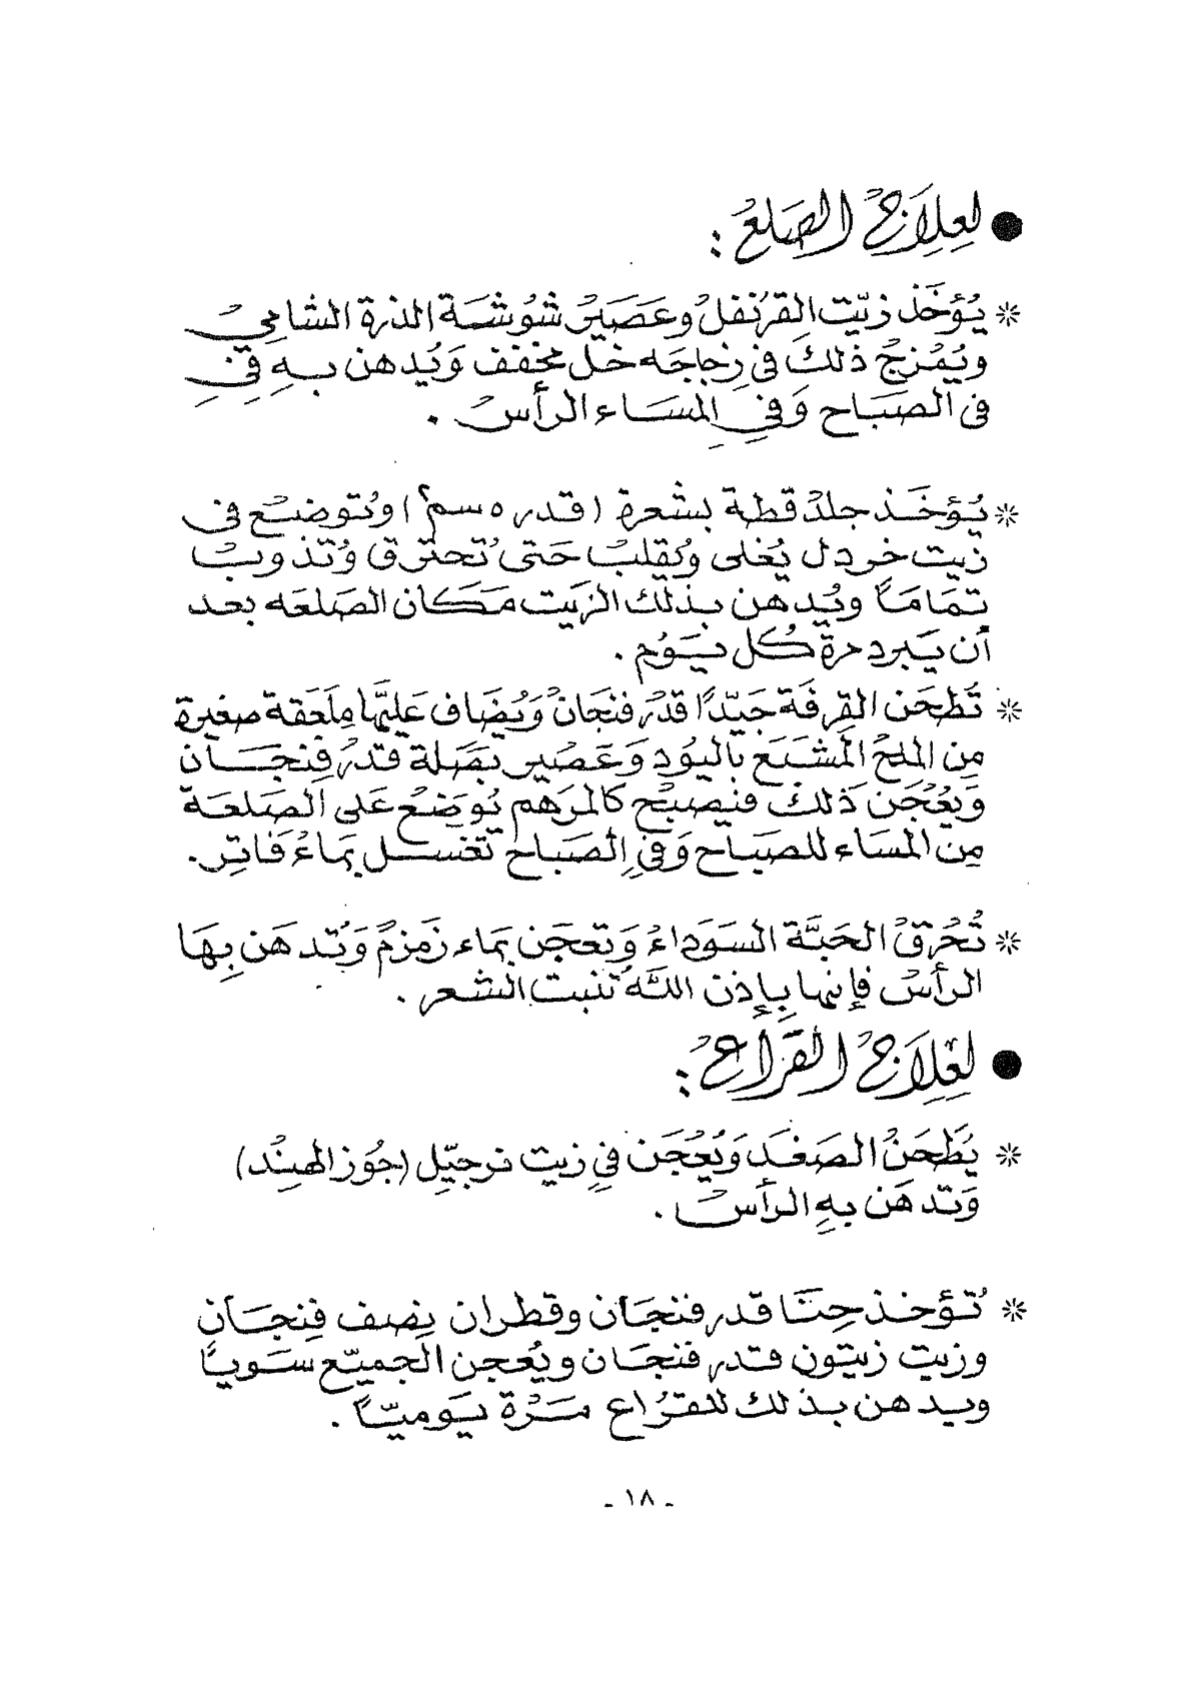 ● لعلاج الصلع :
* يُؤخَذ زيت القرنفل وعَصَير شوُشَة الذرة الشامي
ويُمزج ذلك في زجاجَه خل مخفف وَيُدهن به في
في الصبَاح وَفي المسَاء الرأس .
* يُؤخَذ جلد قطة بشعرة ( قدر ٥ سم٢ ) وتوضع في
زيت خردل يُغلى ويُقلب حَتى تحترق وُتذوب
تمَامَاً ويُدهن بذلك الزيَت مَكَان الصَلعَه بعد
أن يَبرد مرة كُل يَوُم .
* تُطحَن القِرفَة جَيّدًا قدر فنجَان وَيُضَاف عَليَها مِلعَقة صغيرة
مِن الملح المشَبَع باليُود وَعَصْير بصَلة قدر فِنجَان
وَيعُجَن ذلك فنيصبْح كالمرَهم يُوضَع عَلى الصَلعَة
مِن المسَاء للصبَاح وَفي الصبَاح تغسل بماءُ فَاتِر .
* تُحرَق الحَبَّة السَوداءُ وَتعجَن بماء زَمزم وَتُدهَن بِهَا
الرأس فإنها بإذن الله تنبت الشعر .
● لعِلاَج القَرَاع :
* يَطحَن الصَفدَ وَيُعُجَن في زيت نرجيّل (جُوز الهِنْد)
وَتدهَن بهِ الرأس .
* تُؤخذ حِنَا قدر فنجَان وقطران نِصف فِنجَان
وزيت زيتون قدر فنجَان ويُعجن الجميّع سَوياً
ويدهن بذلك للقرُاع مَرْة يَوميّاً .
- ١٨ -